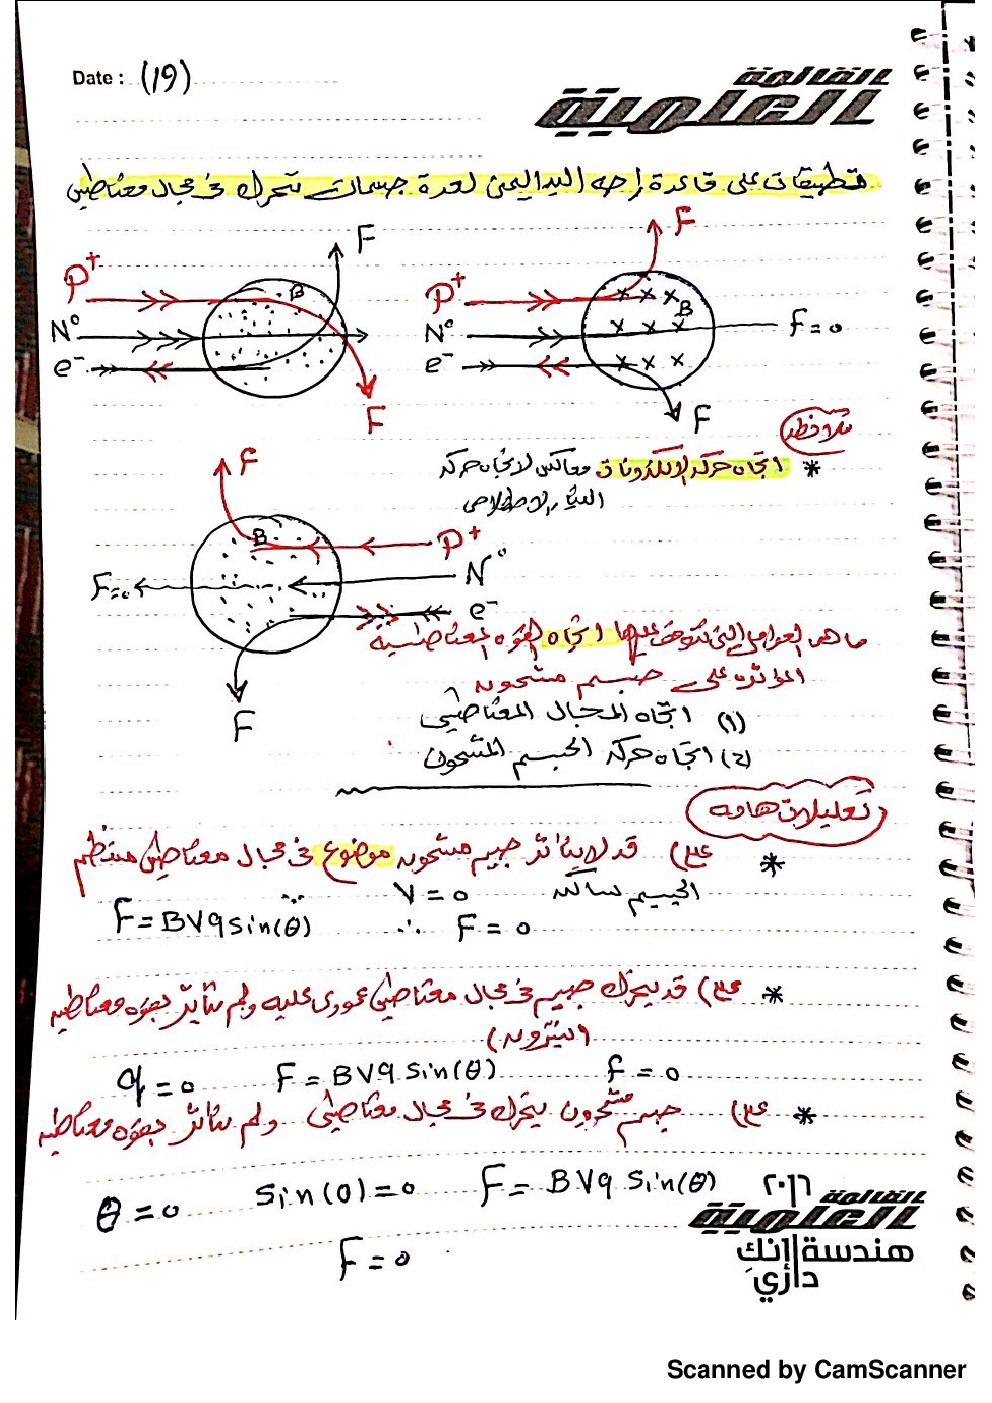 Date : (19)
القائمة
العلمية
تطبيقات على قاعدة راحه اليد اليمنى لعدة جسمات تتحرك فى مجال مغناطيسى
F
P+
N°
e-
B
F
F
P+
N°
e-
B
F = 0
F
تلاحظ
* اتجاه حركه الالكترونات معاكس لاتجاه حركه
التيار الاصطلاحى
F
B
P+
N°
F=0
e-
F
ما هى العوامل التى تتوقف عليها اتجاه القوه المغناطيسية
المؤثره على جسم مشحون
(1) اتجاه المجال المغناطيسى
(2) اتجاه حركه الجسم المشحون
تعليلات هامه
* علل) قد لا يتأثر جسيم مشحون موضوع فى مجال مغناطيسى منتظم
الجسيم ساكن V = 0
F = BVq sin(θ) ∴ F = 0
* علل) قد يتحرك جسيم فى مجال مغناطيسى عمودى عليه ولم يتأثر بقوه مغناطيسيه
(نيترون)
q = 0 F = BVq sin(θ) f = 0
* علل) جسيم مشحون يتحرك فى مجال مغناطيسى ولم يتأثر بقوه مغناطيسيه
θ = 0 Sin(0) = 0 F = BVq Sin(θ)
F = 0
٢٠١٦
القائمة
العلمية
هندسة إنكِ
دارِي
Scanned by CamScanner